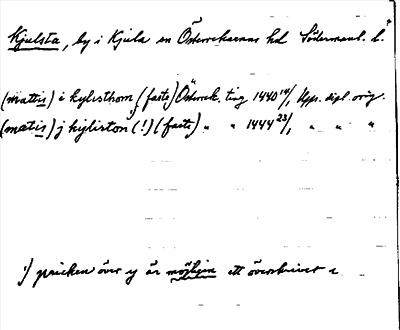 Kjulsta, by i Kjula sn Österrekarnas hd Södermanl. l.
(mattis) i kylisthom (faste) Österrek. ting 1440 14/1 Upps. dipl. orig.
(matis) j hyliston¹ (!) (faste) " " 1444 23/1 " " "
¹) pricken över y är möjligen ett överskrivet e